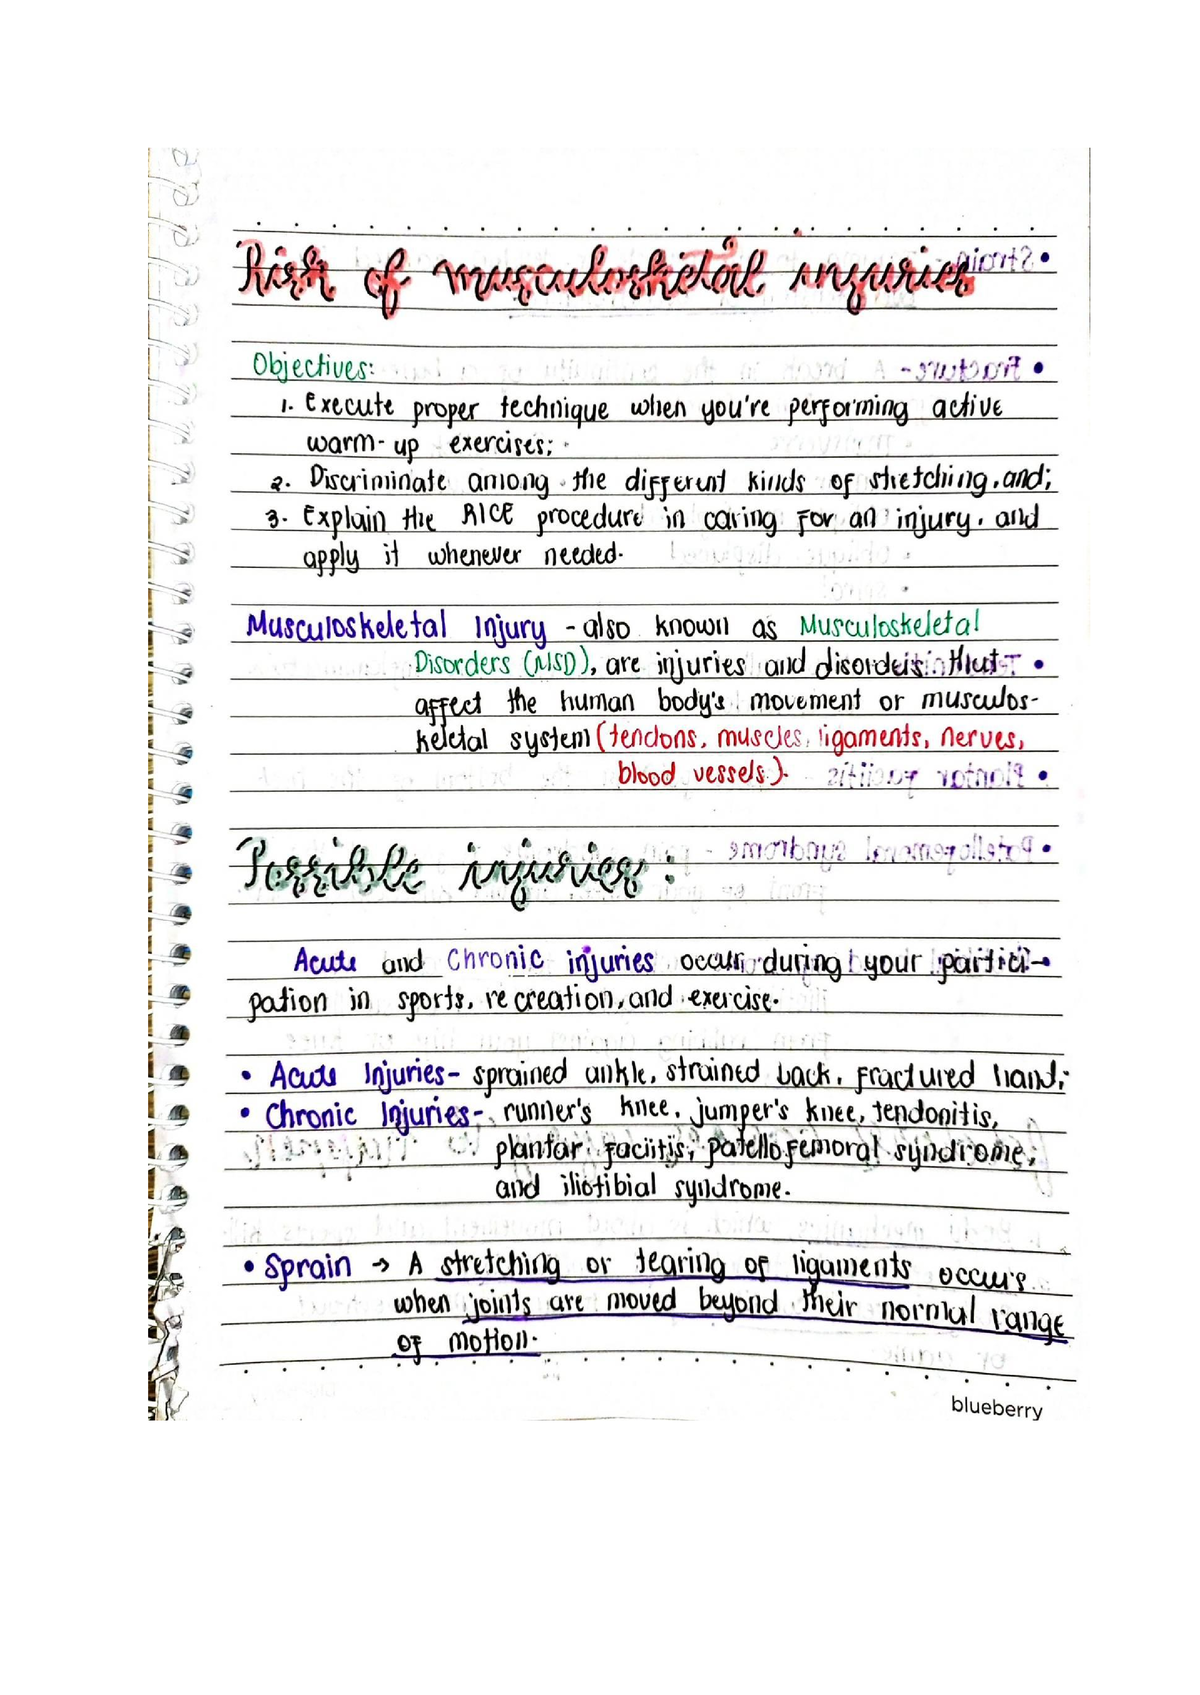 Risk of musculoskeletal injuries
Objectives:
1. Execute proper technique when you're performing active
warm-up exercises;
2. Discriminate among the different kinds of stretching, and;
3. Explain the RICE procedure in caring for an injury, and
apply it whenever needed.
Musculoskeletal Injury - also known as Musculoskeletal
Disorders (MSD), are injuries and disorders that
affect the human body's movement or musculos-
keletal system (tendons, muscles, ligaments, nerves,
blood vessels).
Possible injuries:
Acute and Chronic injuries occur during your partici-
pation in sports, recreation, and exercise.
• Acute Injuries- sprained ankle, strained back, fractured hand;
• Chronic Injuries- runner's knee, jumper's knee, tendonitis,
plantar faciitis, patellofemoral syndrome,
and iliotibial syndrome.
• Sprain → A stretching or tearing of ligaments occurs
when joints are moved beyond their normal range
of motion.
blueberry